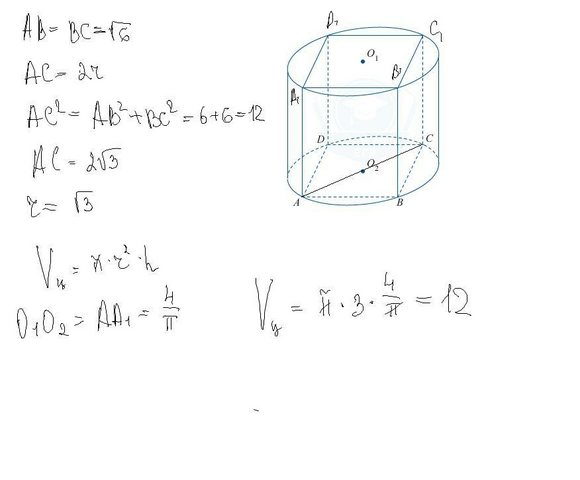 AB = BC = √6
AC = 2r
AC² = AB² + BC² = 6 + 6 = 12
AC = 2√3
r = √3
Vц = π · r² · h
O₁O₂ = AA₁ = 4/π
Vц = π · 3 · 4/π = 12
D₁
C₁
O₁
A₁
B₁
D
C
O₂
A
B